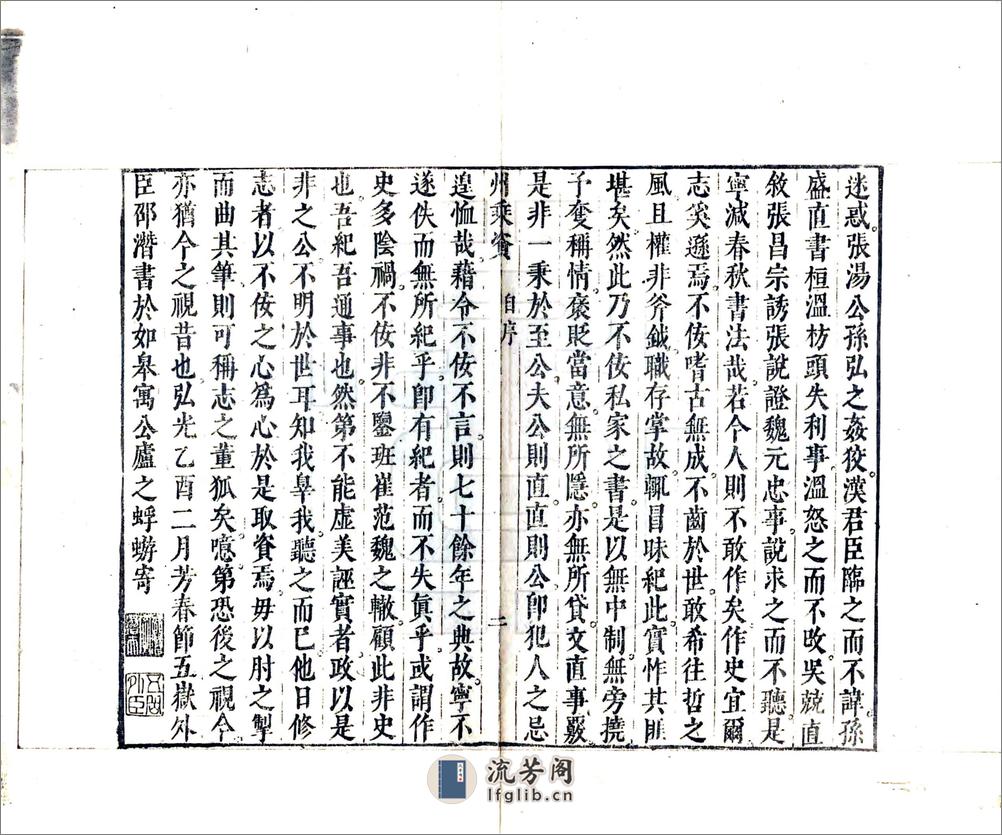 迷惑張湯公孫弘之姦狡漢君臣臨之而不諱孫
盛直書桓溫枋頭失利事溫怒之而不改吳兢直
敘張昌宗誘張說證魏元忠事說求之而不聽是
寧減春秋書法哉若今人則不敢作矣作史宜爾
志奚遜焉不佞嗜古無成不齒於世敢希往哲之
風且權非斧鉞職存掌故輒冒昧紀此實怍其匪
堪矣然此乃不佞私家之書是以無中制無旁撓
予奪稱情褒貶當意無所隱亦無所貸文直事覈
是非一秉於至公夫公則直直則公卽犯人之忌
州乘資
自序
二
遑恤哉藉令不佞不言則七十餘年之典故寧不
遂佚而無所紀乎卽有紀者而不失眞乎或謂作
史多陰禍不佞非不鑒班崔范魏之轍顧此非史
也吾紀吾通事也然第不能虛美誣實者政以是
非之公不明於世耳知我辠我聽之而已他日修
志者以不佞之心爲心於是取資焉毋以肘之掣
而曲其筆則可稱志之董狐矣噫第恐後之視今
亦猶今之視昔也弘光乙酉二月芳春節五嶽外
臣邵潛書於如皋寓公廬之蜉蝣寄
五嶽外臣
流芳阁
lfglib.cn